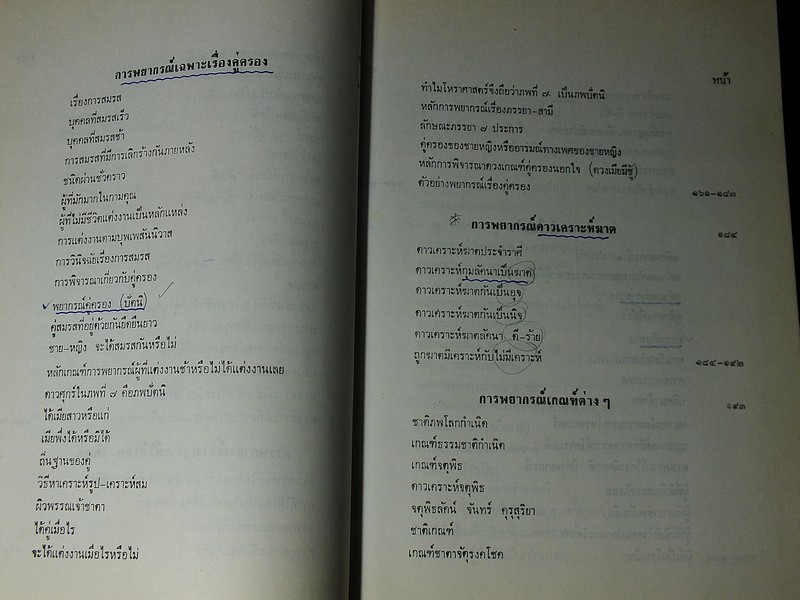 การพยากรณ์เฉพาะเรื่องคู่ครอง
เรื่องการสมรส
บุคคลที่สมรสเร็ว
บุคคลที่สมรสช้า
การสมรสที่มีการเลิกร้างกันภายหลัง
ชนิดผ่านชั่วคราว
ผู้ที่มักมากในกามคุณ
ผู้ที่ไม่มีชีวิตแต่งงานเป็นหลักแหล่ง
การแต่งงานตามบุพเพสันนิวาส
การวินิจฉัยเรื่องการสมรส
การพิจารณาเกี่ยวกับคู่ครอง
พยากรณ์คู่ครอง (ปัตนิ)
คู่สมรสที่อยู่ด้วยกันยืดยืนยาว
ชาย-หญิง จะได้สมรสกันหรือไม่
หลักเกณฑ์การพยากรณ์ผู้ที่แต่งงานช้าหรือไม่ได้แต่งงานเลย
ดาวศุกร์ในภพที่ ๗ คือภพปัตนิ
ได้เมียสาวหรือแก่
เมียพึ่งได้หรือมิได้
ถิ่นฐานของคู่
วิธีหาเคราะห์รูป-เคราะห์สม
ผิวพรรณเจ้าชาตา
ได้คู่เมื่อไร
จะได้แต่งงานเมื่อไรหรือไม่
หน้า
ทำไมโหราศาสตร์จึงถือว่าภพที่ ๗ เป็นภพปัตนิ
หลักการพยากรณ์เรื่องภรรยา-สามี
ลักษณะภรรยา ๗ ประการ
คู่ครองของชายหญิงหรืออารมณ์ทางเพศของชายหญิง
หลักการพิจารณาดวงเกณฑ์คู่ครองนอกใจ (ดวงเมียมีชู้)
ตัวอย่างพยากรณ์เรื่องคู่ครอง ๑๖๑-๑๘๓
การพยากรณ์ดาวเคราะห์ฆาต ๑๘๔
ดาวเคราะห์ฆาตประจำราศี
ดาวเคราะห์กุมลัคนาเป็นฆาต
ดาวเคราะห์ฆาตกันเป็นอุจ
ดาวเคราะห์ฆาตกันเป็นนิจ
ดาวเคราะห์ฆาตลัคนา ดี-ร้าย
ถูกฆาตมีเคราะห์กับไม่มีเคราะห์ ๑๘๔-๑๙๒
การพยากรณ์เกณฑ์ต่าง ๆ ๑๙๓
ชาติภพโลกกำเนิด
เกณฑ์ธรรมชาติกำเนิด
เกณฑ์จตุพิธ
ดาวเคราะห์จตุพิธ
จตุพิธลัคน์ จันทร์ คุรุสุริยา
ชาติเกณฑ์
เกณฑ์ชาตาจัตุรงคโชค